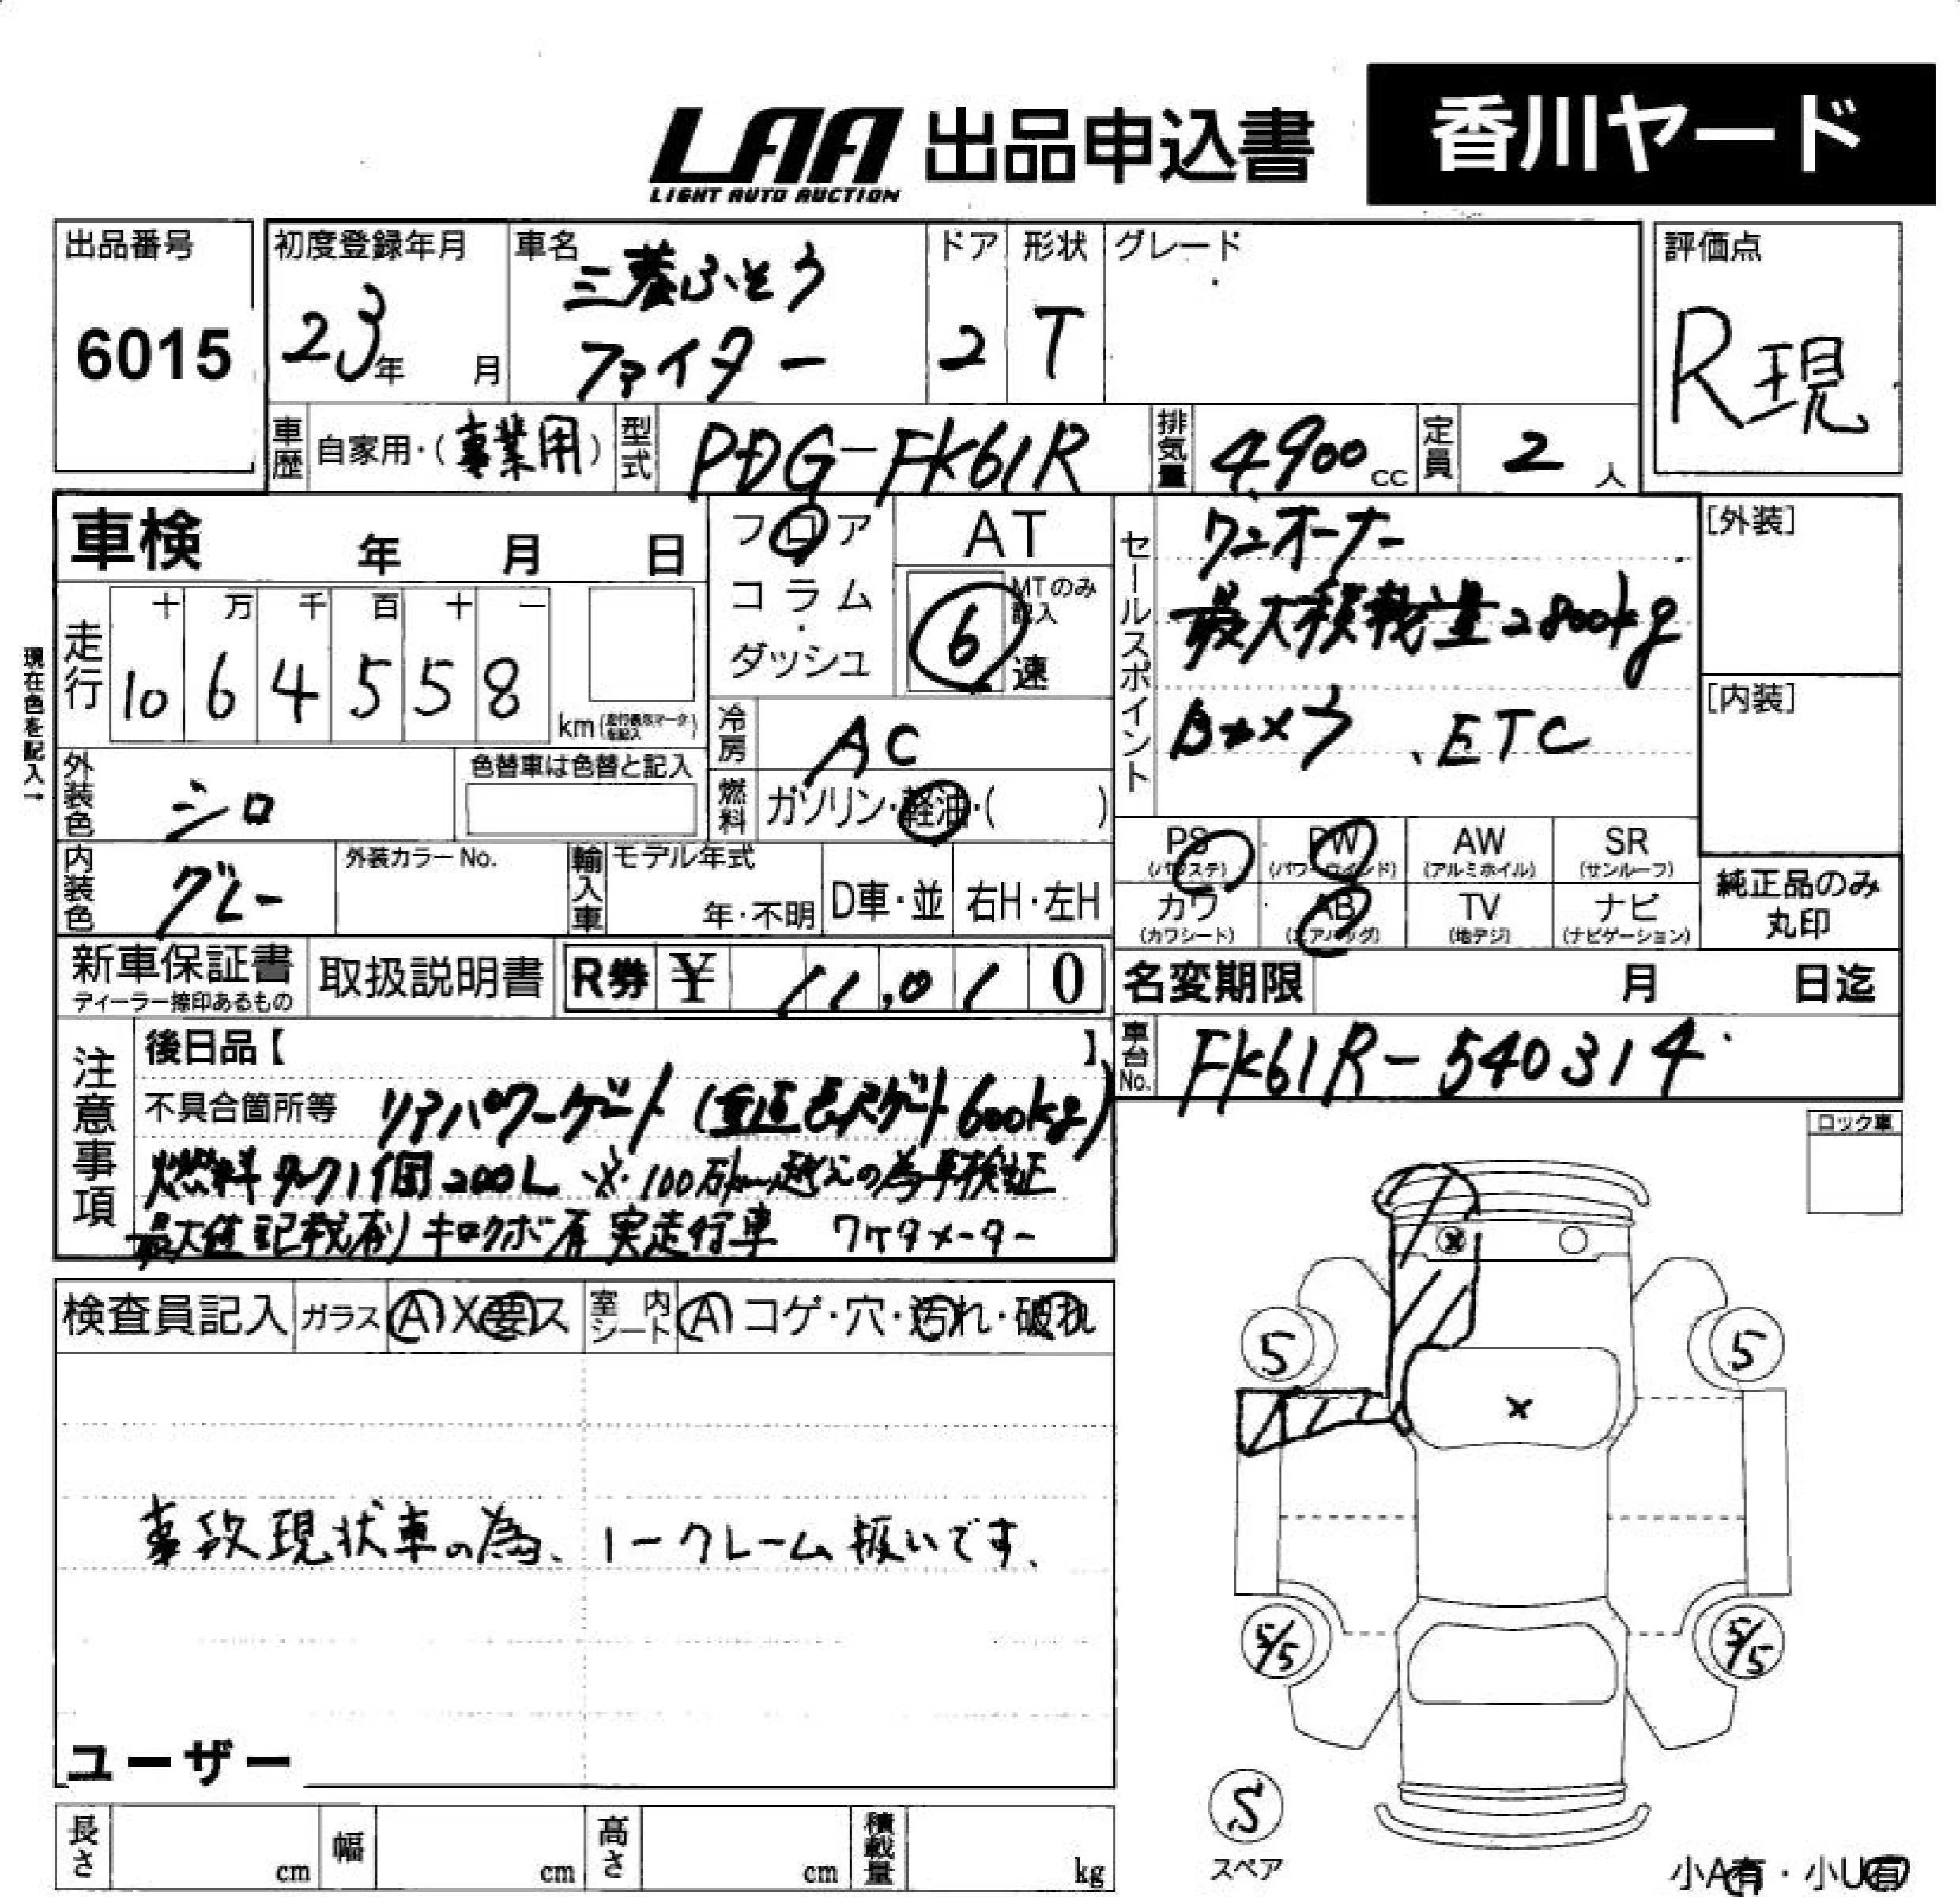 LAA 出品申込書 香川ヤード
LIGHT AUTO AUCTION
出品番号 初度登録年月 車名 ドア 形状 グレード 評価点
6015 23年 月 三菱ふそう ファイター 2 T R現
車歴 自家用・(事業用) 型式 PDG-FK61R 排気量 4,900cc 定員 2人
車検 年 月 日
フロア コラム・ダッシュ
AT
MTのみ記入
6速
セールスポイント
ワンオーナー
最大積載量2800kg
Bカメラ、ETC
[外装]
[内装]
現在色を記入→
走行 十 万 千 百 十 一
10 6 4 5 5 8 km(走行表示マークを記入)
冷房 AC
燃料 ガソリン・軽油・( )
外装色 シロ 色替車は色替と記入
内装色 グレー 外装カラーNo. 輸入車 モデル年式 年・不明 D車・並 右H・左H
PS(パワステ) PW(パワーウインド) AW(アルミホイル) SR(サンルーフ)
カワ(カワシート) AB(エアバッグ) TV(地デジ) ナビ(ナビゲーション)
純正品のみ丸印
新車保証書 ディーラー捺印あるもの 取扱説明書 R券 ¥ 11,010
名変期限 月 日迄
車台No. FK61R-540314
注意事項
後日品【 】
不具合箇所等 リアパワーゲート(ゲート600kg)
燃料タンク1個200L ※100万km越えの為車検証
最大値記載有り キロクボ有 実走行車 7ケタメーター
ロック車
検査員記入 ガラス A X 要 ス 室内シート A コゲ・穴・汚れ・破れ
事故現状車の為、ノークレーム扱いです、
ユーザー
長さ cm 幅 cm 高さ cm 積載量 kg
×
5 5
×
5/5 5/5
S
スペア
小A有・小U有